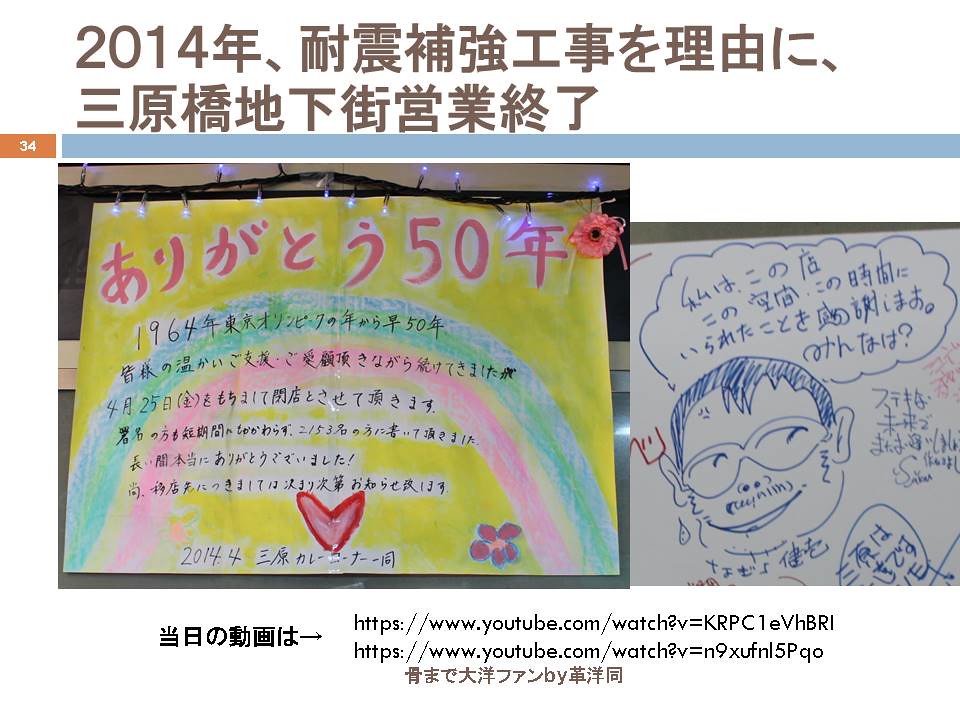 2014年、耐震補強工事を理由に、
三原橋地下街営業終了
34
ありがとう50年
1964年東京オリンピックの年から早50年
皆様の温かいご支援・ご愛顧頂きながら続けてきましたが
4月25日(金)をもちまして閉店とさせて頂きます。
署名の方も短期間にもかかわらず、2153名の方に書いて頂きました。
長い間本当にありがとうございました!
尚、移店先につきましては決まり次第お知らせ致します。
2014.4 三原カレーコーナー一同
私は、この店
この空間、この時間に
いられたことを感謝します。
みんなは?
ステキな
未来で
また
当日の動画は→
https://www.youtube.com/watch?v=KRPC1eVhBRI
https://www.youtube.com/watch?v=n9xufnl5Pqo
骨まで大洋ファンby革洋同